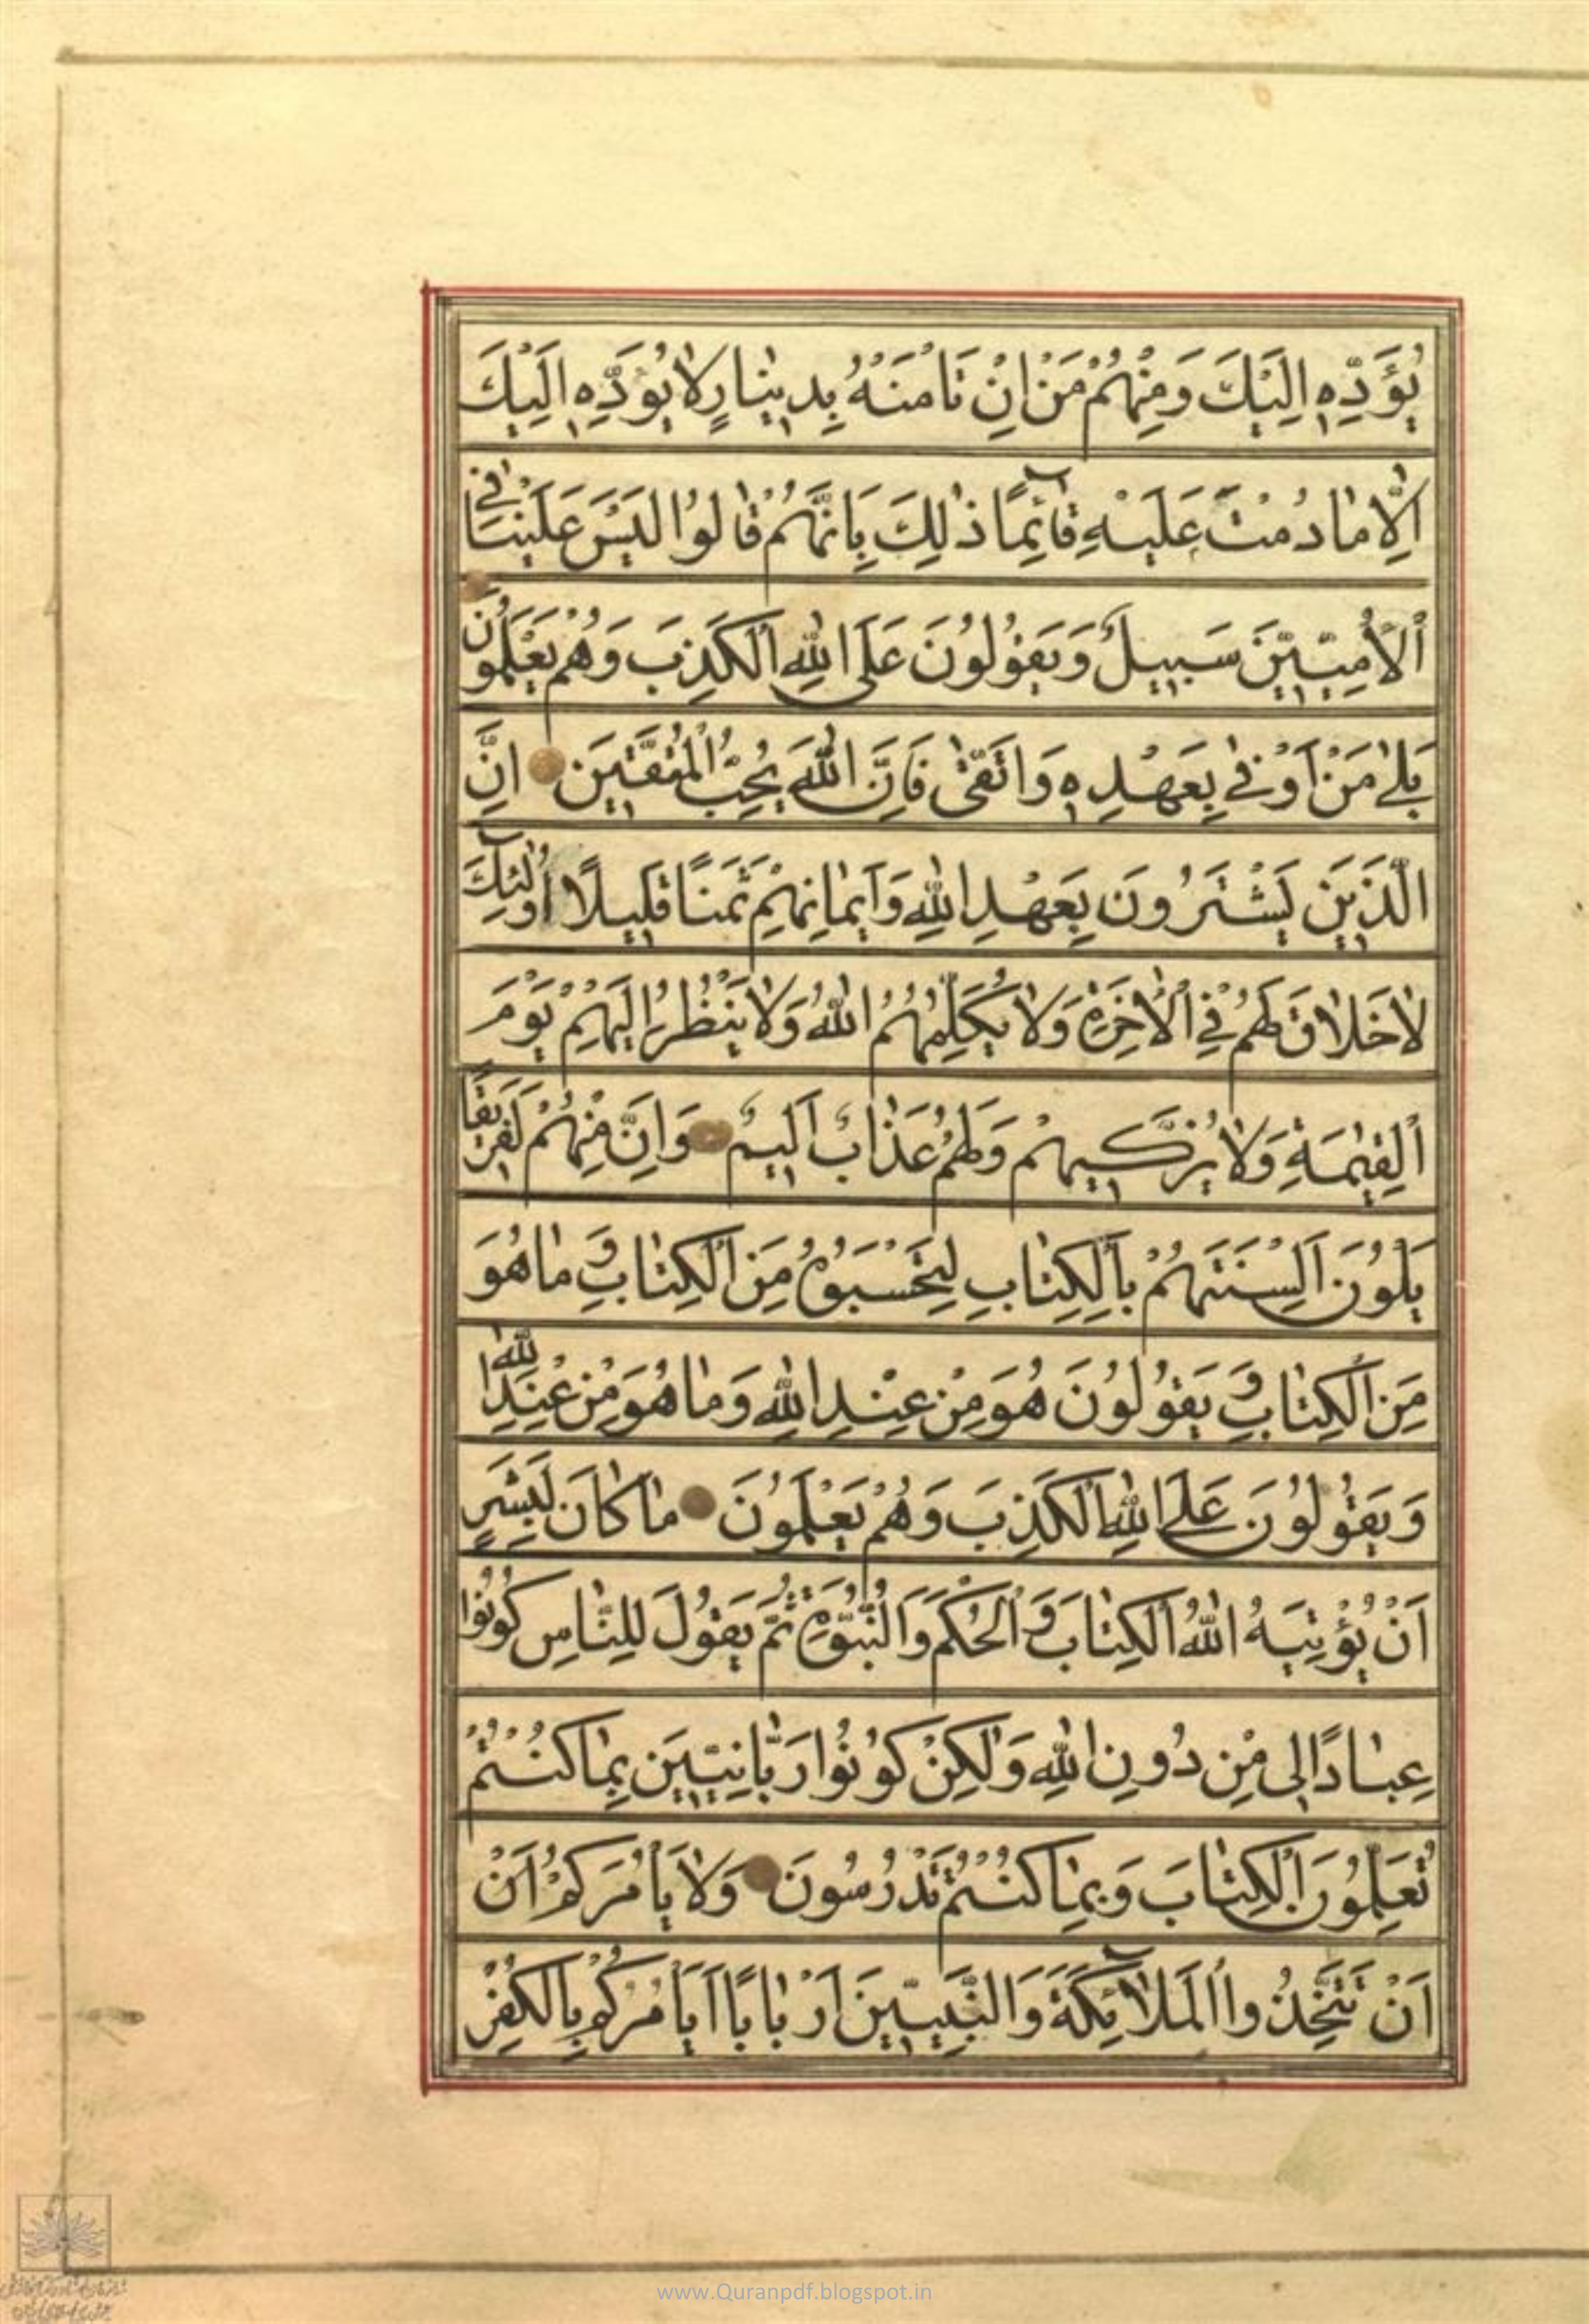 يُؤَدِّهِ اِلَيْكَ وَمِنْهُمْ مَنْ اِنْ تَاْمَنْهُ بِدِينٰارٍ لاٰ يُؤَدِّهِ اِلَيْكَ
اِلّٰا مٰا دُمْتَ عَلَيْهِ قٰائِمًا ذٰلِكَ بِاَنَّهُمْ قٰالُوا لَيْسَ عَلَيْنٰا فِي
ٱلْاُمِّيِّينَ سَبِيلٌ وَيَقُولُونَ عَلَى اللّٰهِ الْكَذِبَ وَهُمْ يَعْلَمُونَ
بَلٰى مَنْ اَوْفٰى بِعَهْدِهِ وَاتَّقٰى فَاِنَّ اللّٰهَ يُحِبُّ الْمُتَّقِينَ اِنَّ
الَّذِينَ يَشْتَرُونَ بِعَهْدِ اللّٰهِ وَاَيْمٰانِهِمْ ثَمَنًا قَلِيلًا اُولٰئِكَ
لاٰ خَلاٰقَ لَهُمْ فِي ٱلْاٰخِرَةِ وَلاٰ يُكَلِّمُهُمُ اللّٰهُ وَلاٰ يَنْظُرُ اِلَيْهِمْ يَوْمَ
ٱلْقِيٰمَةِ وَلاٰ يُزَكِّيهِمْ وَلَهُمْ عَذٰابٌ اَلِيمٌ وَاِنَّ مِنْهُمْ لَفَرِيقًا
يَلْوُونَ اَلْسِنَتَهُمْ بِالْكِتٰابِ لِتَحْسَبُوهُ مِنَ الْكِتٰابِ وَمٰا هُوَ
مِنَ الْكِتٰابِ وَيَقُولُونَ هُوَ مِنْ عِنْدِ اللّٰهِ وَمٰا هُوَ مِنْ عِنْدِ اللّٰهِ
وَيَقُولُونَ عَلَى اللّٰهِ الْكَذِبَ وَهُمْ يَعْلَمُونَ مٰا كٰانَ لِبَشَرٍ
اَنْ يُؤْتِيَهُ اللّٰهُ الْكِتٰابَ وَٱلْحُكْمَ وَالنُّبُوَّةَ ثُمَّ يَقُولَ لِلنّٰاسِ كُونُوا
عِبٰادًا لِي مِنْ دُونِ اللّٰهِ وَلٰكِنْ كُونُوا رَبّٰانِيِّينَ بِمٰا كُنْتُمْ
تُعَلِّمُونَ الْكِتٰابَ وَبِمٰا كُنْتُمْ تَدْرُسُونَ وَلاٰ يَاْمُرَكُمْ اَنْ
اَنْ تَتَّخِذُوا الْمَلاٰئِكَةَ وَالنَّبِيِّينَ اَرْبٰابًا اَيَاْمُرُكُمْ بِالْكُفْرِ
www.Quranpdf.blogspot.in